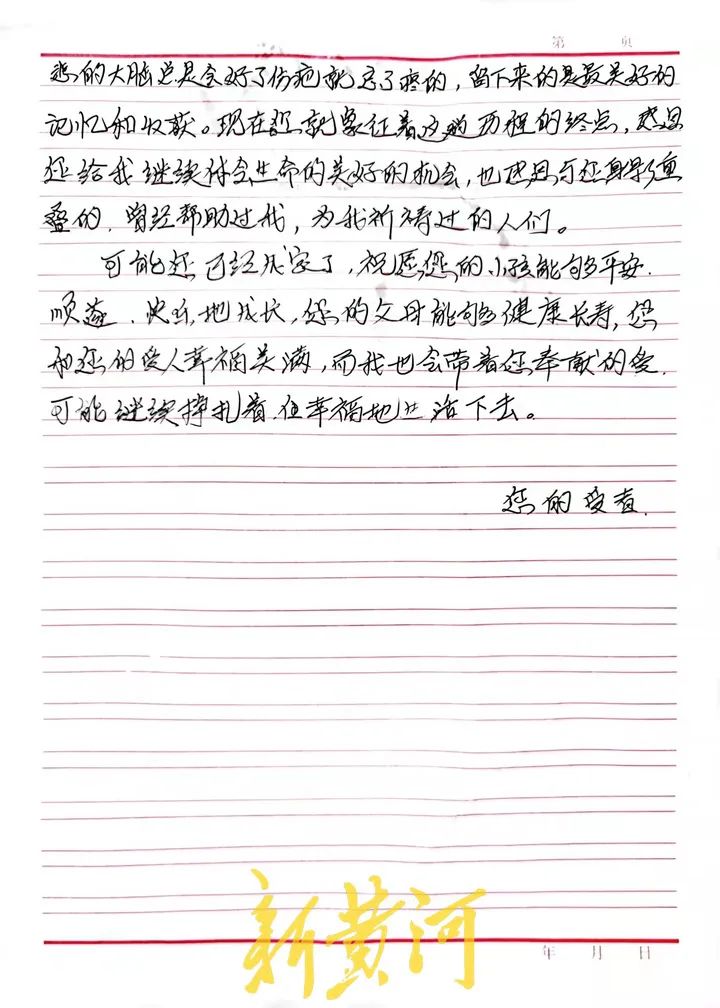 第 页
的大脑总是会好了伤疤就忘了疼的，留下来的是最美好的
记忆和收获。现在您就象征着这趟历程的终点，感恩
您给我继续体会生命的美好的机会，也感恩与您身影重
叠的、曾经帮助过我，为我祈祷过的人们。
可能您已经成家了，祝愿您的小孩能够平安、
顺遂、快乐地成长，您的父母能够健康长寿，您
和您的爱人幸福美满，而我也会带着您奉献的爱，
可能继续挣扎着但幸福地生活下去。
您的受者.
新黄河
年 月 日